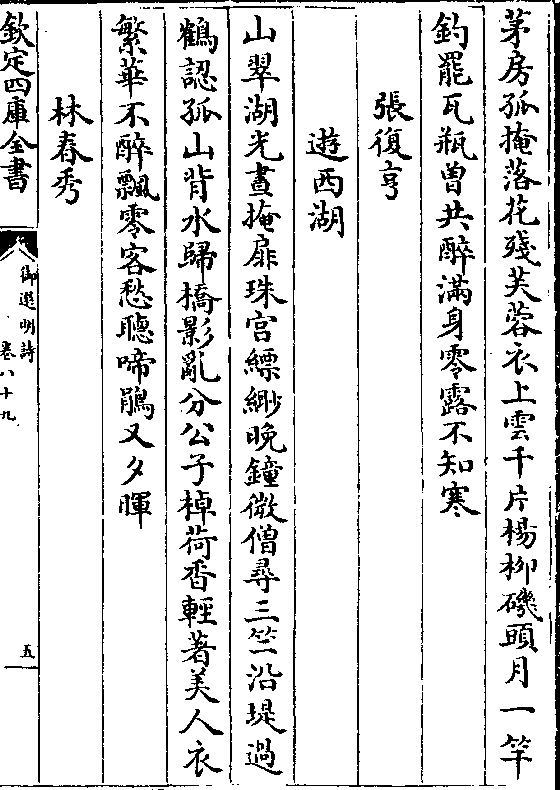 茅房孤掩落花殘芙蓉衣上雲千片楊柳磯頭月一竿
釣罷瓦瓶曽共醉滿身零露不知寒
張復亨
遊西湖
山翠湖光晝掩扉珠宫縹緲晚鐘微僧尋三竺沿堤過
鶴認孤山背水歸橋影亂分公子棹荷香輕著美人衣
繁華不醉飄零客愁聽啼鵑又夕暉
林春秀
欽定四庫全書
御選明詩
卷八十九
五